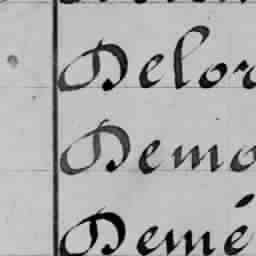 Delor
Demo
Demé